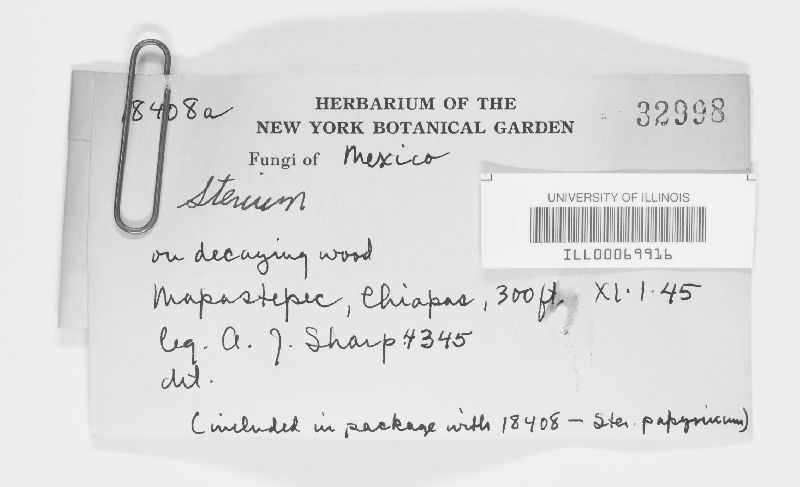 18408a
HERBARIUM OF THE
NEW YORK BOTANICAL GARDEN
32998
Fungi of Mexico
Stereum
UNIVERSITY OF ILLINOIS
ILL00069916
on decaying wood
Mapastepec, Chiapas, 300 ft. XI·1·45
leg. A. J. Sharp 4345
det.
(included in package with 18408 — Ster. papyrinum)